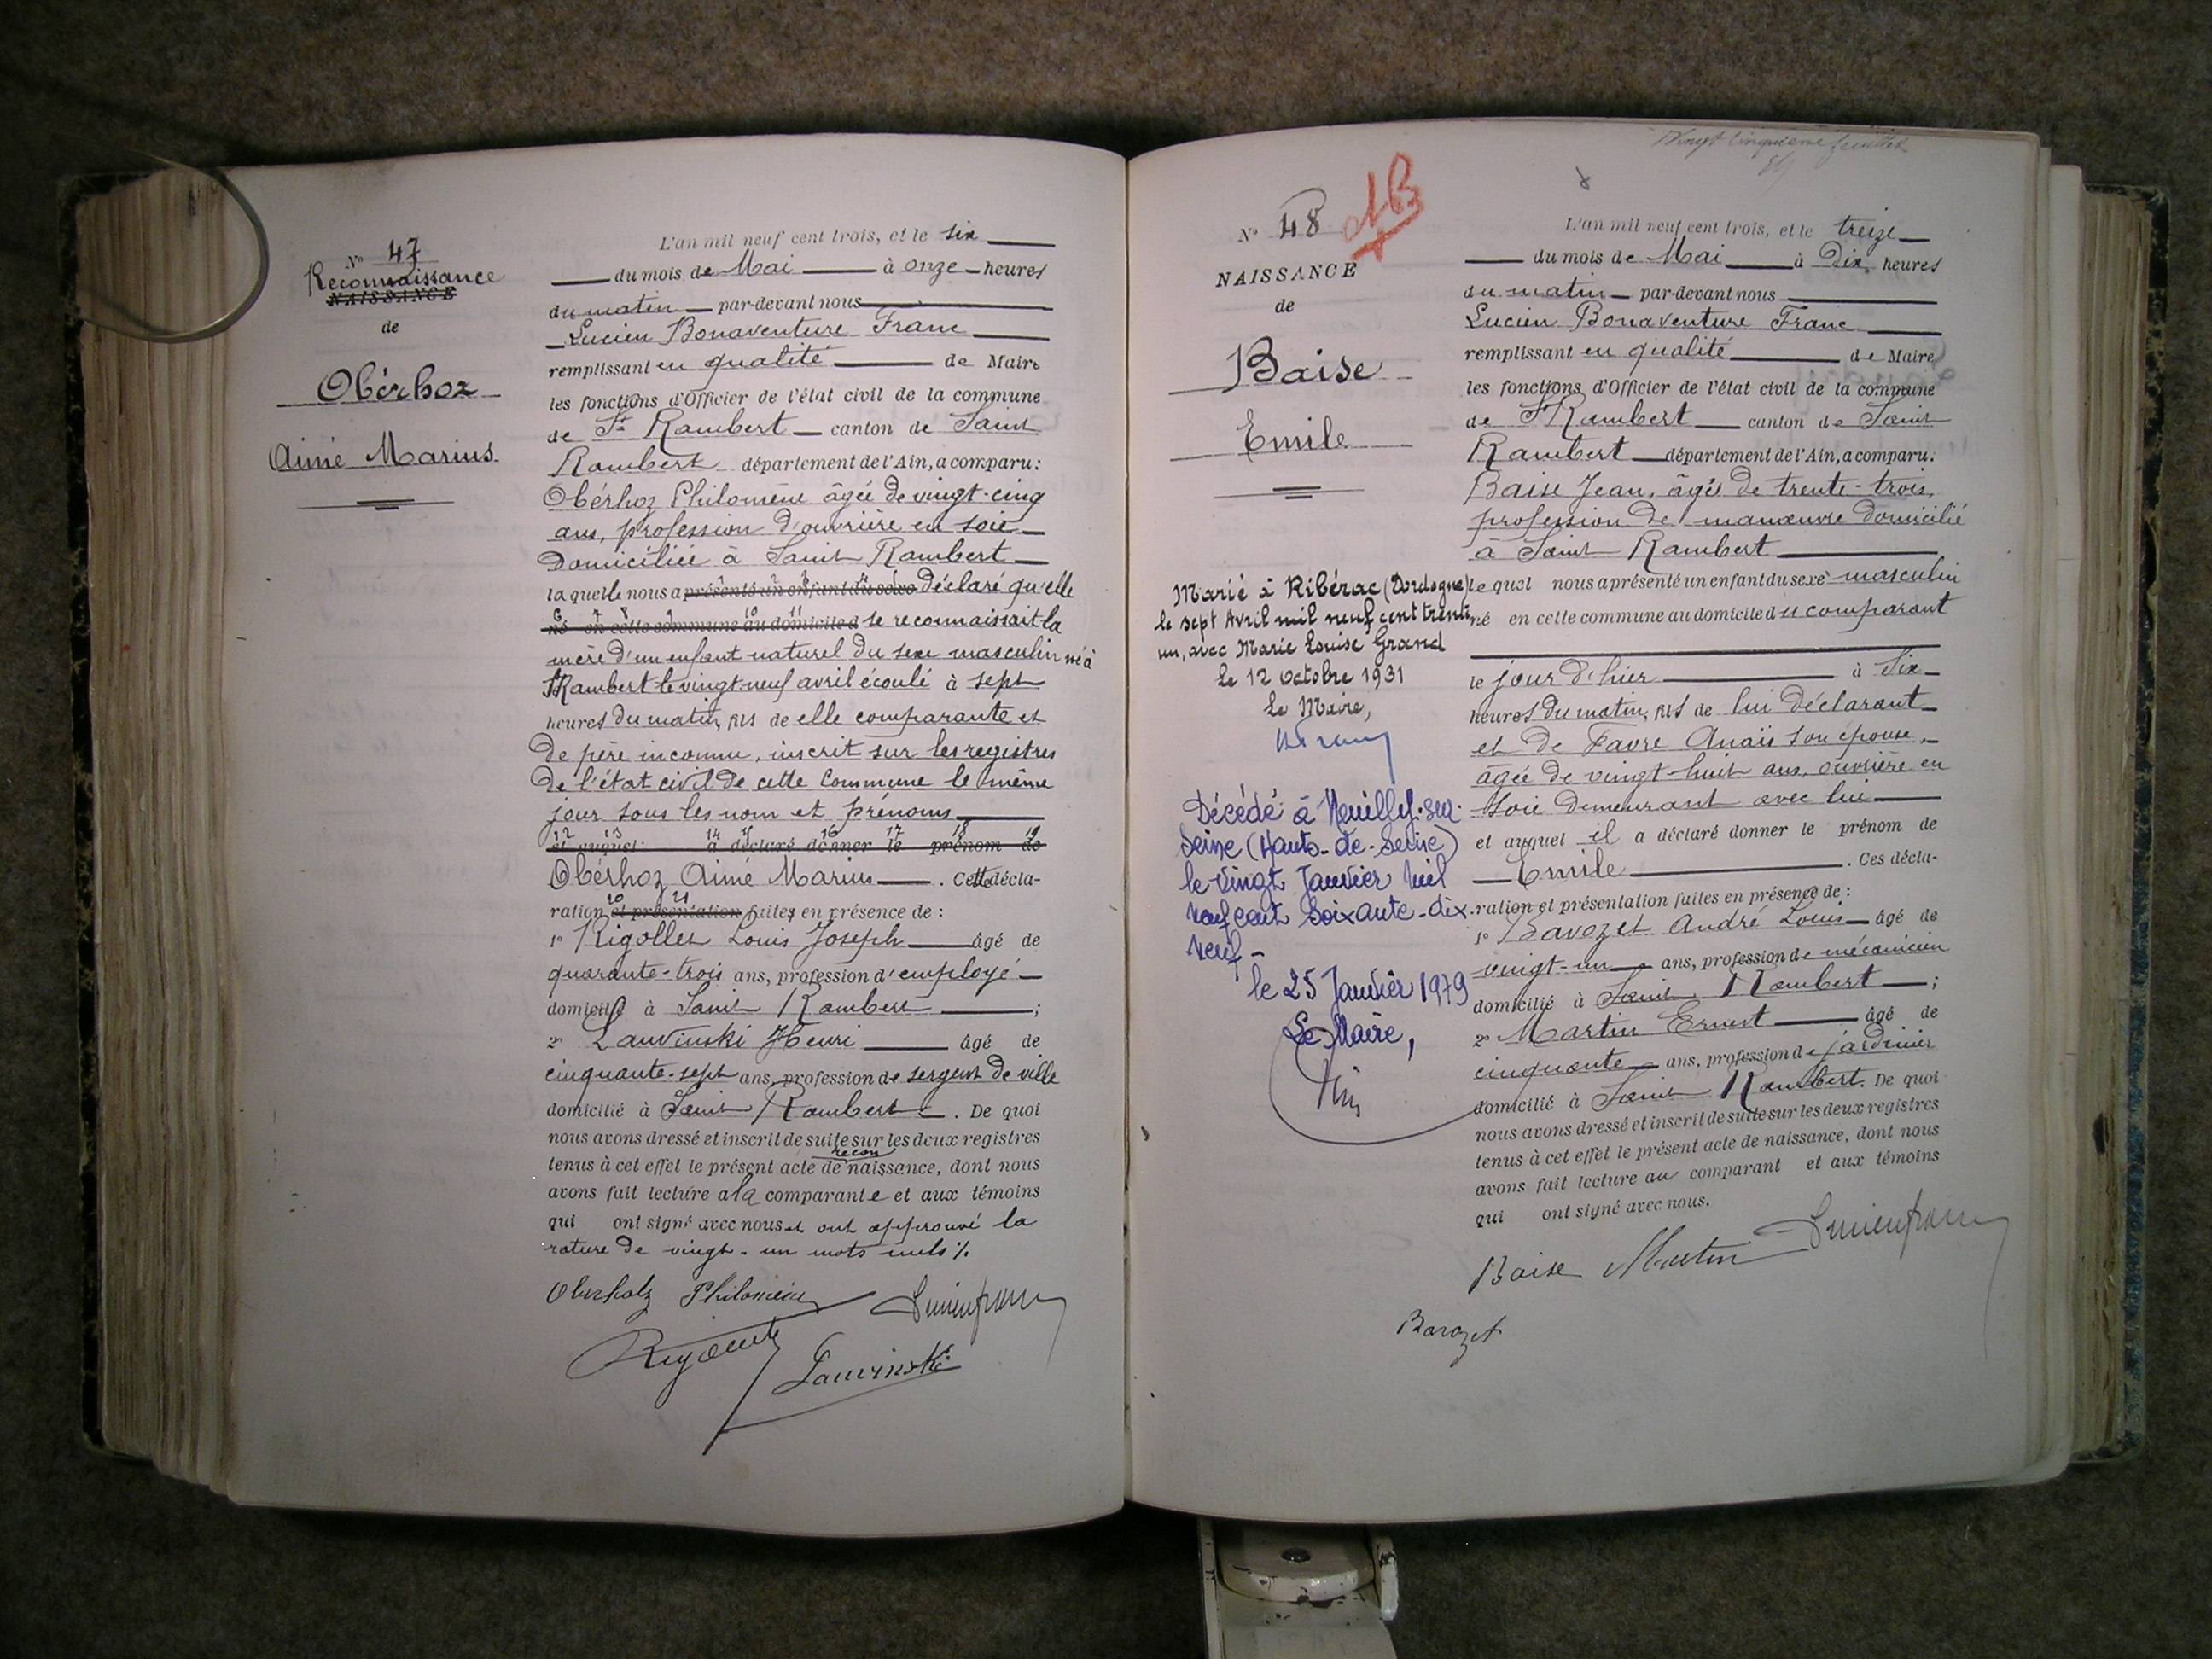 N° 47
Reconnaissance
NAISSANCE
de
Obérhoz
Aimé Marius
L'an mil neuf cent trois, et le six
du mois de Mai à onze heures
du matin par-devant nous
Lucien Bonaventure Franc
remplissant en qualité de Maire
les fonctions d'Officier de l'état civil de la commune
de St Rambert canton de Saint
Rambert département de l'Ain, a comparu:
Obérhoz Philomène âgée de vingt-cinq
ans, profession d'ouvrière en soie
domiciliée à Saint Rambert
laquelle nous a présenté un enfant du sexe déclaré qu'elle
né en cette commune au domicile d se reconnaissait la
mère d'un enfant naturel du sexe masculin né à
St Rambert le vingt-neuf avril écoulé à sept
heures du matin, fils de elle comparante et
de père inconnu, inscrit sur les registres
de l'état civil de cette commune le même
jour sous les nom et prénoms
12 13 14 15 16 17 18 19
et auquel a déclaré donner le prénom de
Obérhoz Aimé Marius . Cette décla-
20 21
ration et présentation faites en présence de :
1° Rigollet Louis Joseph âgé de
quarante-trois ans, profession d'employé
domicilié à Saint Rambert ;
2° Lauvinski Henri âgé de
cinquante-sept ans, profession de sergent de ville
domicilié à Saint Rambert . De quoi
nous avons dressé et inscrit de suite sur les deux registres
recon
tenus à cet effet le présent acte de naissance, dont nous
avons fait lecture à la comparante et aux témoins
qui ont signé avec nous et ont approuvé la
rature de vingt-un mots nuls %.
Oberholz Philomène
Lauvinski
Vingt cinquième feuillet
N° 48
AB
NAISSANCE
de
Baise
Emile
Marié à Ribérac (Dordogne)
le sept Avril mil neuf cent trente
un, avec Marie Louise Grand
le 12 octobre 1931
Le Maire,
Décédé à Neuilly-sur-
Seine (Hauts-de-Seine)
le vingt Janvier mil
neuf cent soixante-dix-
neuf -
le 25 Janvier 1979
Le Maire,
L'an mil neuf cent trois, et le treize
du mois de Mai à Dix heures
du matin par-devant nous
Lucien Bonaventure Franc
remplissant en qualité de Maire
les fonctions d'Officier de l'état civil de la commune
de St Rambert canton de Saint
Rambert département de l'Ain, a comparu:
Baise Jean, âgé de trente-trois,
profession de manœuvre domicilié
à Saint Rambert
lequel nous a présenté un enfant du sexe masculin
né en cette commune au domicile du comparant
le jour d'hier à six
heures du matin, fils de lui déclarant
et de Favre Anaïs son épouse,
âgée de vingt-huit ans, ouvrière en
soie demeurant avec lui
et auquel il a déclaré donner le prénom de
Emile . Ces décla-
ration et présentation faites en présence de :
1° Bavozet André Louis âgé de
vingt-un ans, profession de mécanicien
domicilié à Saint Rambert ;
2° Martin Ernest âgé de
cinquante ans, profession de jardinier
domicilié à Saint Rambert. De quoi
nous avons dressé et inscrit de suite sur les deux registres
tenus à cet effet le présent acte de naissance, dont nous
avons fait lecture au comparant et aux témoins
qui ont signé avec nous.
Baise Martin
Bavozet